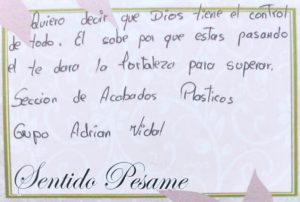 Quiero decir que Dios tiene el control
de todo. El sabe por que estas pasando
el te dara la fortaleza para superar.
Seccion de Acabados Plasticos
Grupo Adrian Vidal
Sentido Pesame